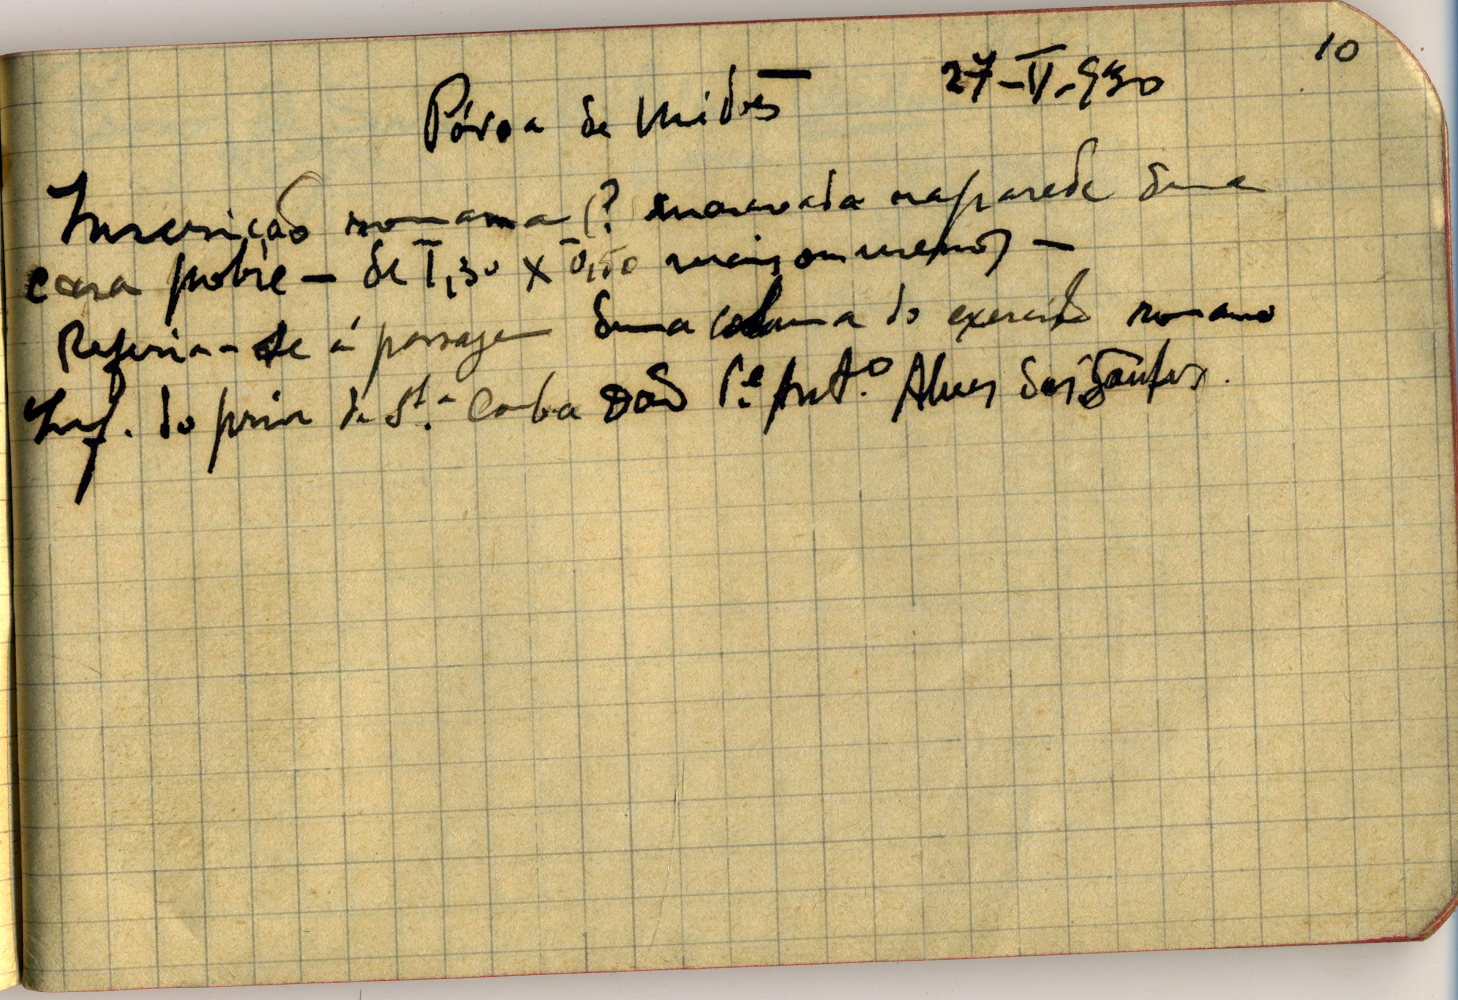 10
Póvoa de Midões 27-V-930
Inscrição romana (? encravada na parede duma
casa pobre - de 1,30 X 0,50 mais ou menos) -
Referia-se á passagem duma coluna do exercito romano
Inf. do prior de St.ª Comba Dão P.e Ant.º Alves dos Santos.